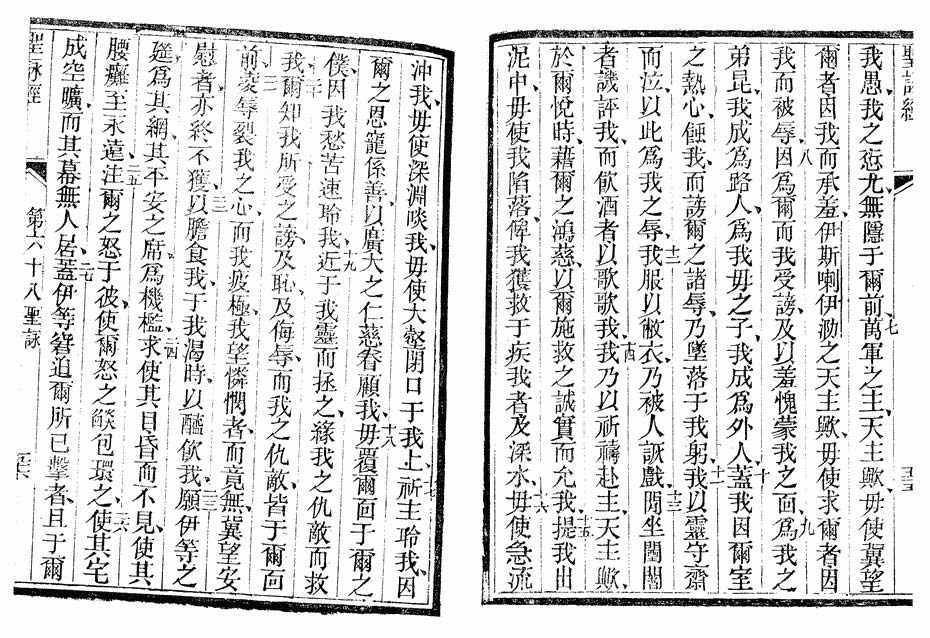 聖詠經
我愚、我之愆尤、無隱于爾前、七萬軍之主天主歟、毋使冀望
爾者因我而承羞、伊斯喇伊泐之天主歟、毋使求爾者因
我而被辱、八因爲爾而我受謗、及以羞愧蒙我之面、九爲我之
弟昆、我成爲路人、爲我毋之子、我成爲外人、十蓋我因爾室
之熱心、蝕我、而謗爾之諸辱、乃墜落于我躬、十一我以靈守齋
而泣、以此爲我之辱、十二我服以敝衣、乃被人詼戲、十三閒坐閭閻
者譏評我、而飲酒者以歌歌我、十四我乃以祈禱赴主、天主歟、
於爾悅時、藉爾之鴻慈、以爾施救之誠實而允我、十五提我出
泥中、毋使我陷落、俾我獲救于疾我者、及深水、十六毋使急流
沖我、毋使深淵啖我、毋使大壑閉口于我上、十七祈主聆我、因
爾之恩寵係善、以廣大之仁慈眷顧我、十八毋覆爾面于爾之
僕、因我愁苦速聆我、十九近于我靈而拯之、緣我之仇敵而救
我、二十爾知我所受之謗、及恥、及侮辱、而我之仇敵、皆于爾面
前、二一凌辱裂我之心、而我疲極、我望憐憫者而竟無、冀望安
慰者、亦終不獲、二二以膽食我、于我渴時、以醯飲我、二三願伊等之
筵爲其網、其平安之席、爲機檻、二四求使其目昏而不見、使其
腰癱至永遠、二五注爾之怒于彼、使爾怒之燄包環之、二六使其宅
成空曠、而其幕無人居、二七蓋伊等窘迫爾所已擊者、且于爾
聖詠經
第六十八聖詠